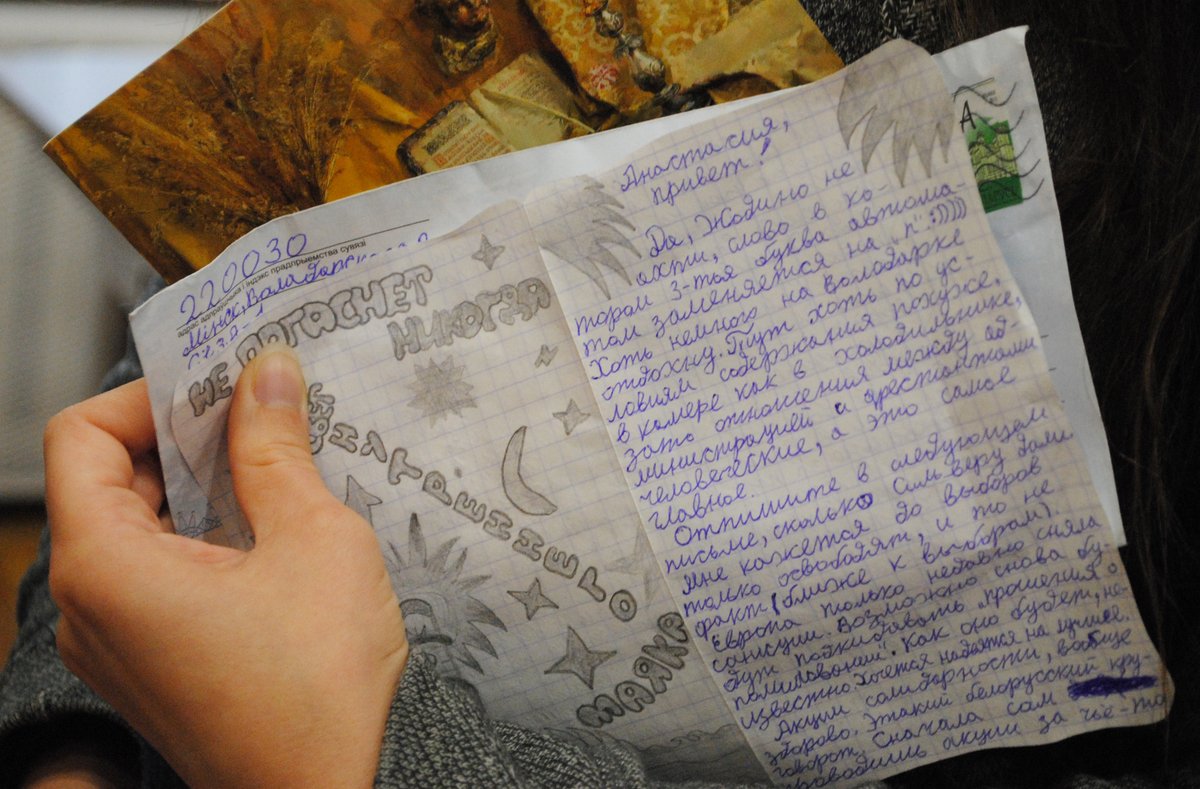 220030
адрас адпраўшчыка і індэкс прадпрыемства сувязі
Мінск, Валадарскага 2
НЕ ПОГАСНЕТ
НИКОГДА
СВЕТ
ВНУТРЕННЕГО
МАЯКА
А
Анастасия,
привет!
Да, Жодино не
ахти, слово в ко-
тором 3-тья буква автома-
том заменяется на "п":)))))
Хоть немного на Володарке
отдохну. Тут хоть по ус-
ловиям содержания похуже,
в камере как в холодильнике,
зато отношения между ад-
министрацией и арестантами
человеческие, а это самое
главное.
Отпишите в следующем
письме, сколько Сильверу дали
мне кажется до выборов
только освободят, и то не
факт (ближе к выборам).
Европа только недавно сняла
санкции. Возможно снова бу-
дут подкидывать "прошения о
помиловании". Как оно будет, не-
известно. Хочется надеятся на лучшее.
Акции солидарности, вообще
здорово. Этакий белорусский кру-
говорот. Сначала сам
проводишь акции за чье-то